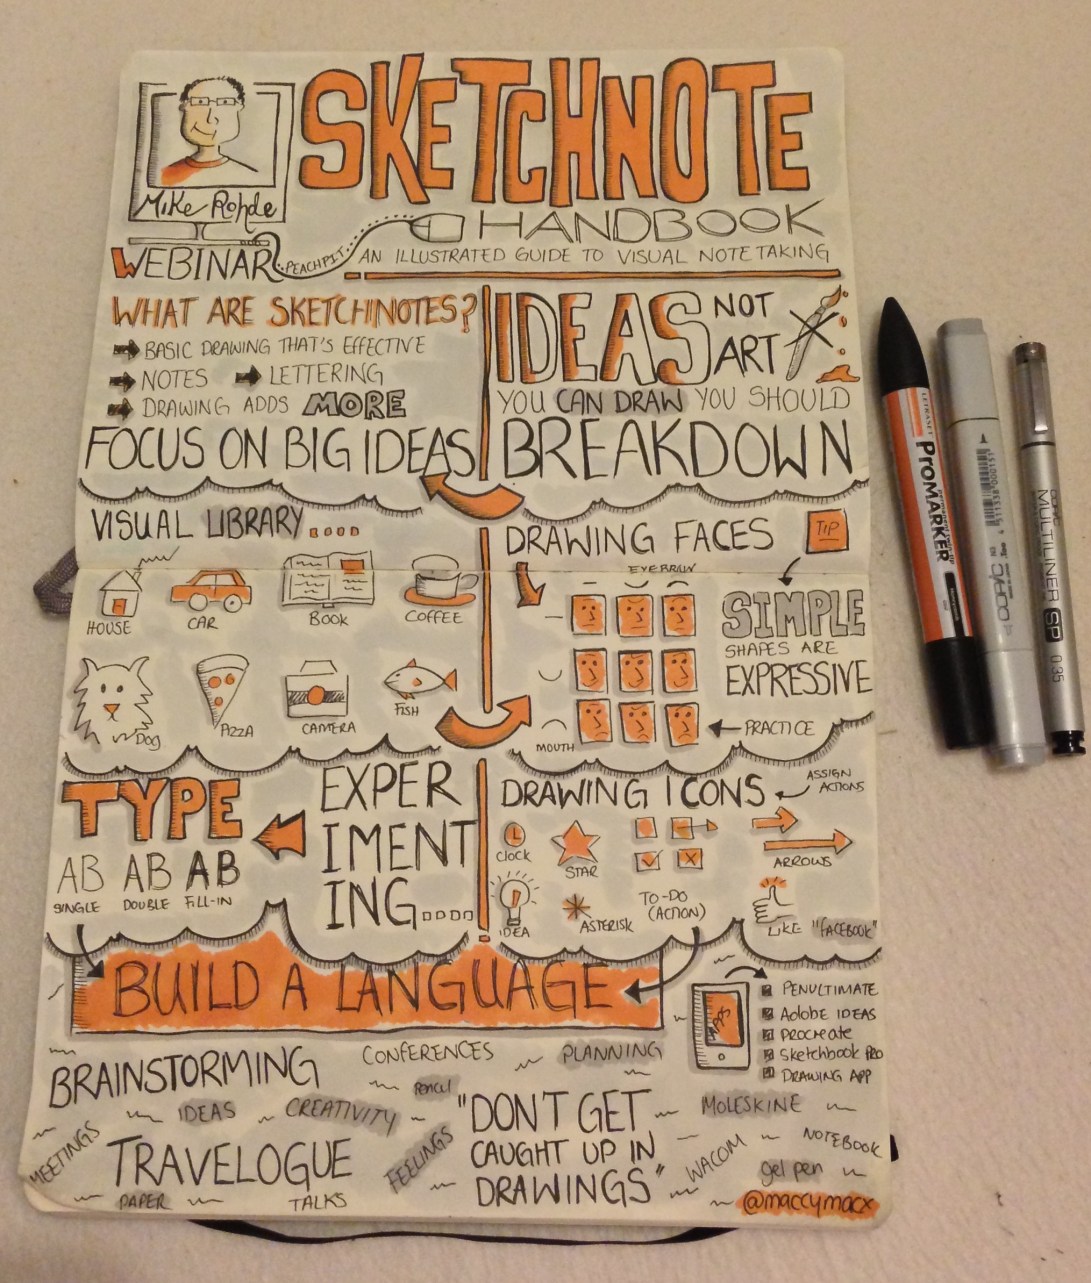 SKETCHNOTE
Mike Rohde
HANDBOOK
WEBINAR
PEACHPIT
AN ILLUSTRATED GUIDE TO VISUAL NOTE TAKING
WHAT ARE SKETCHNOTES?
BASIC DRAWING THAT'S EFFECTIVE
NOTES LETTERING
DRAWING ADDS MORE
FOCUS ON BIG IDEAS
IDEAS NOT
ART
YOU CAN DRAW YOU SHOULD
BREAKDOWN
VISUAL LIBRARY....
HOUSE CAR BOOK COFFEE
DOG PIZZA CAMERA FISH
DRAWING FACES
TIP
SIMPLE
SHAPES ARE
EXPRESSIVE
PRACTICE
MOUTH
TYPE
AB AB AB
SINGLE DOUBLE FILL-IN
EXPER
IMENT
ING....
DRAWING ICONS
ASSIGN
ACTIONS
CLOCK STAR ARROWS
IDEA ASTERISK
TO-DO
(ACTION)
LIKE "FACEBOOK"
BUILD A LANGUAGE
APPS
PENULTIMATE
Adobe IDEAS
PROCREATE
Sketchbook PRO
DRAWING APP
BRAINSTORMING
CONFERENCES
PLANNING
PENCIL
IDEAS
CREATIVITY
MEETINGS
TRAVELOGUE
FEELINGS
PAPER
TALKS
"DON'T GET
CAUGHT UP IN
DRAWINGS"
MOLESKINE
WACOM
NOTEBOOK
gel pen
@maccymacx
LETRASET
PROMARKER
MULTILINER SP
0.35